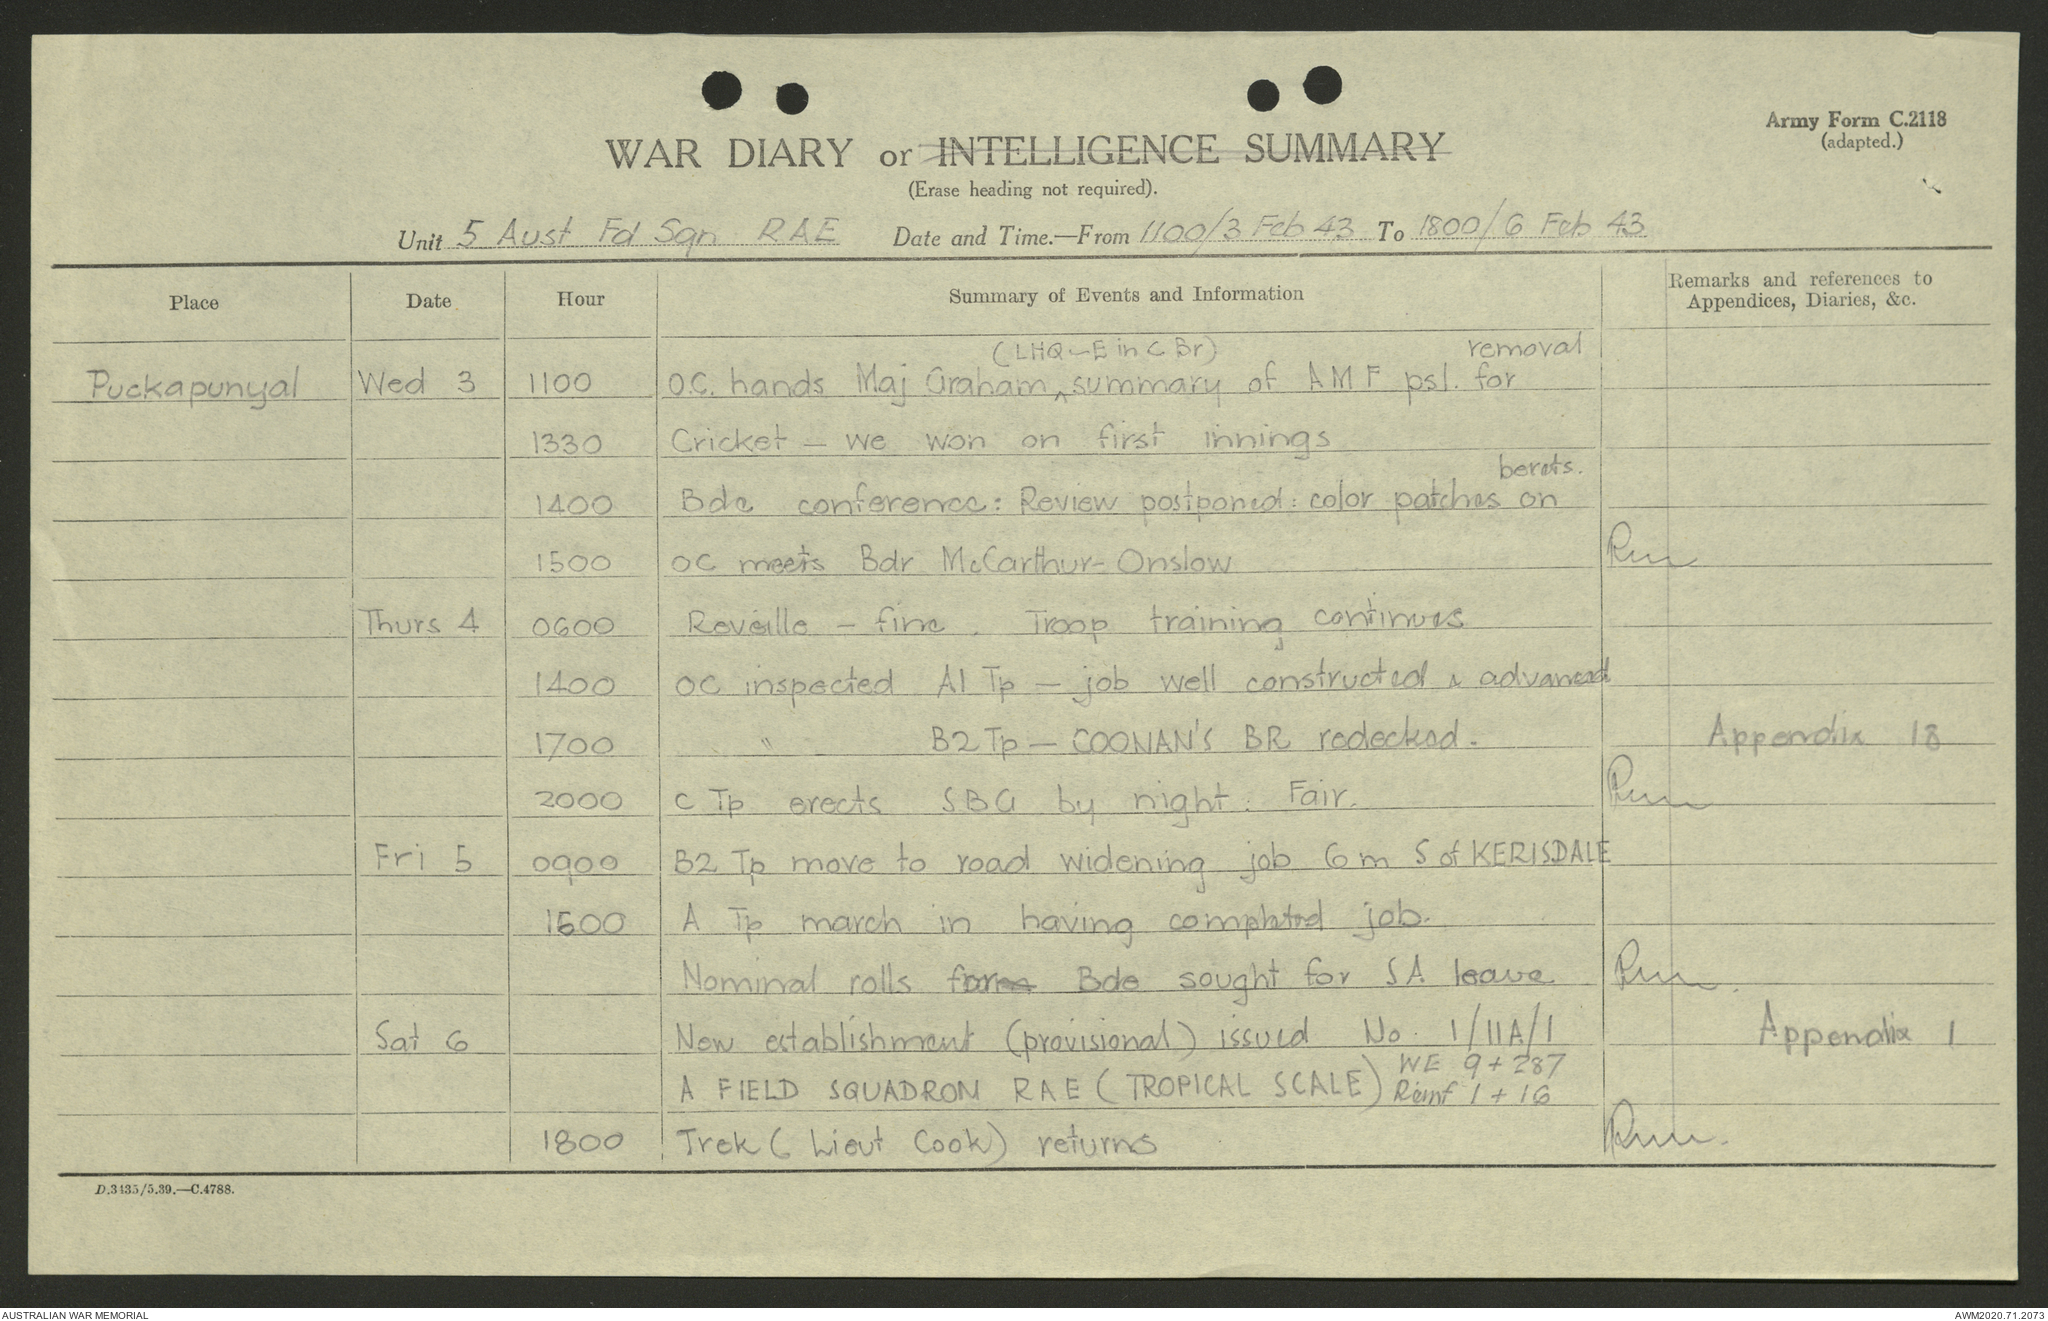 Army Form C.2118
(adapted.)
WAR DIARY or INTELLIGENCE SUMMARY
(Erase heading not required).
Unit 5 Aust Fd Sqn RAE Date and Time.—From 1100/3 Feb 43 To 1800/6 Feb 43
Place Date Hour Summary of Events and Information Remarks and references to
Appendices, Diaries, &c.
(LHQ - E in C Br) removal
Puckapunyal Wed 3 1100 O.C. hands Maj Graham ^ summary of AMF psl. for
1330 Cricket - we won on first innings
berets.
1400 Bde conference: Review postponed: color patches on
1500 OC meets Bdr McCarthur-Onslow
Thurs 4 0600 Reveille - fine. Troop training continues
1400 OC inspected A1 Tp - job well constructed & advanced
1700 " B2 Tp - COONAN'S BR redecked. Appendix 18
2000 C Tp erects SBG by night. Fair.
Fri 5 0900 B2 Tp move to road widening job 6 m S of KERISDALE
1500 A Tp march in having completed job.
Nominal rolls Bde sought for SA leave
Sat 6 New establishment (provisional) issued No. 1/11A/1 Appendix 1
WE 9 + 287
A FIELD SQUADRON RAE (TROPICAL SCALE) Reinf 1 + 16
1800 Trek (Lieut Cook) returns
D.3435/5.39.—C.4788.
AUSTRALIAN WAR MEMORIAL AWM2020.71.2073